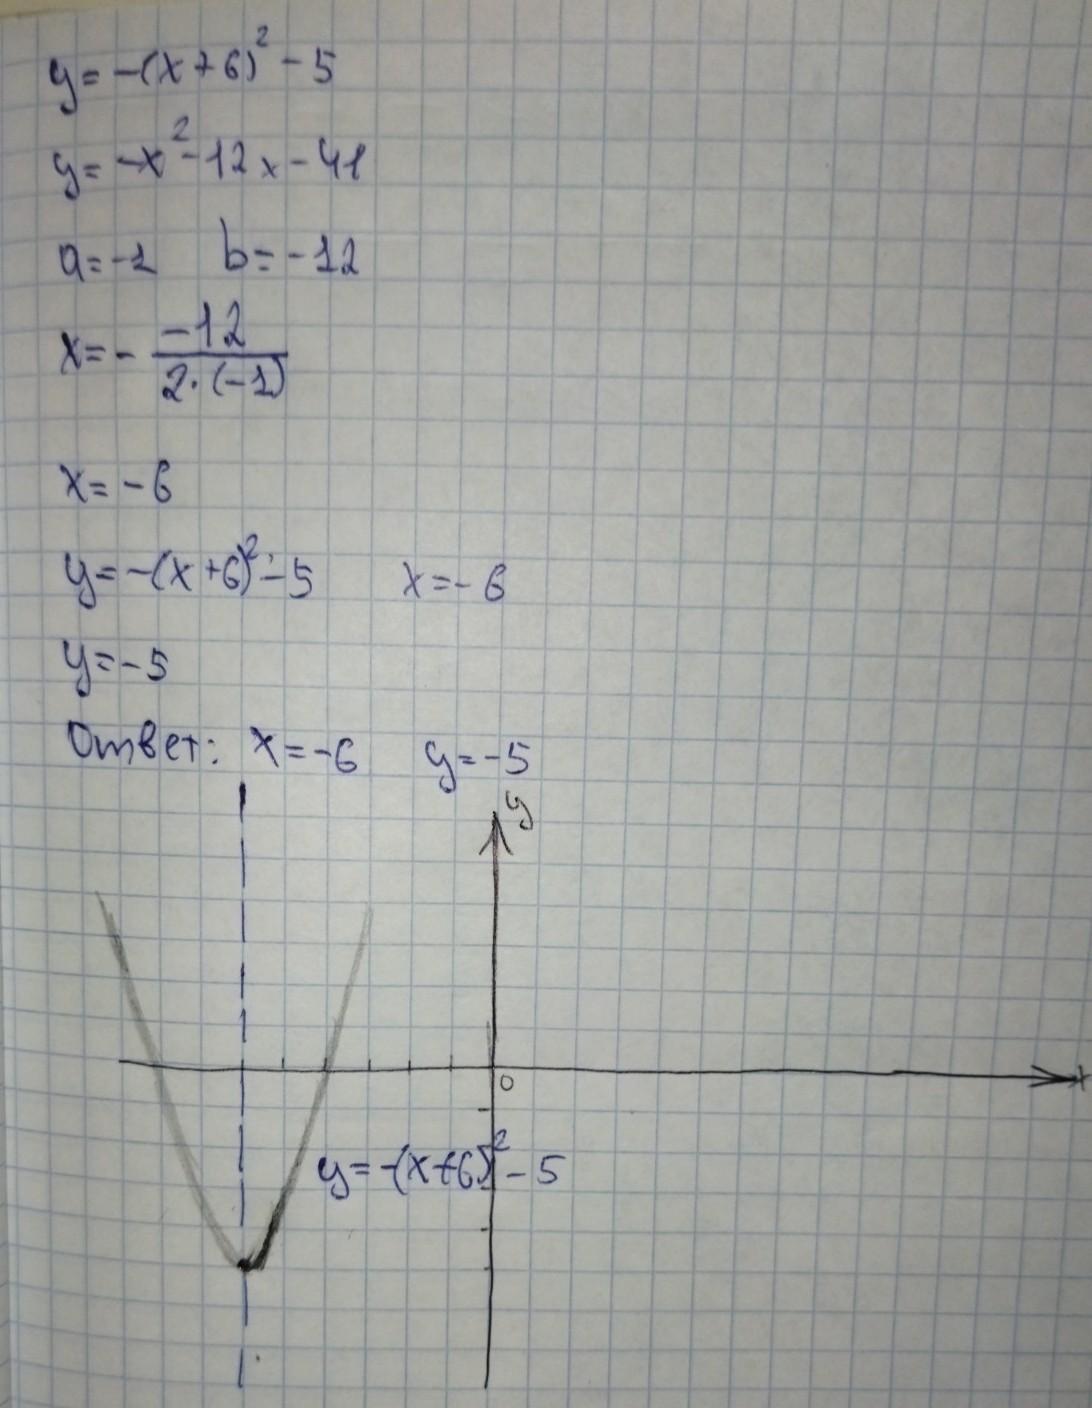 y = -(x+6)² - 5
y = -x² - 12x - 41
a = -1 b = -12
x = - -12 / 2·(-1)
x = -6
y = -(x+6)² - 5 x = -6
y = -5
Ответ: x = -6 y = -5
y
0
x
y = -(x+6)² - 5